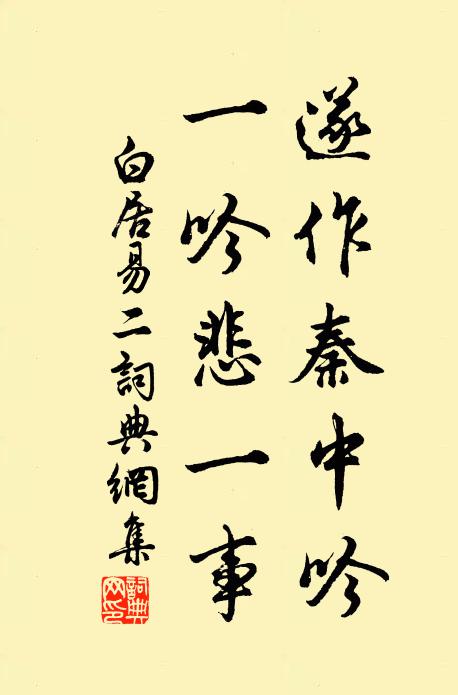 遂作秦中吟
一吟悲一事
白居易二詞典網集
詞典網印